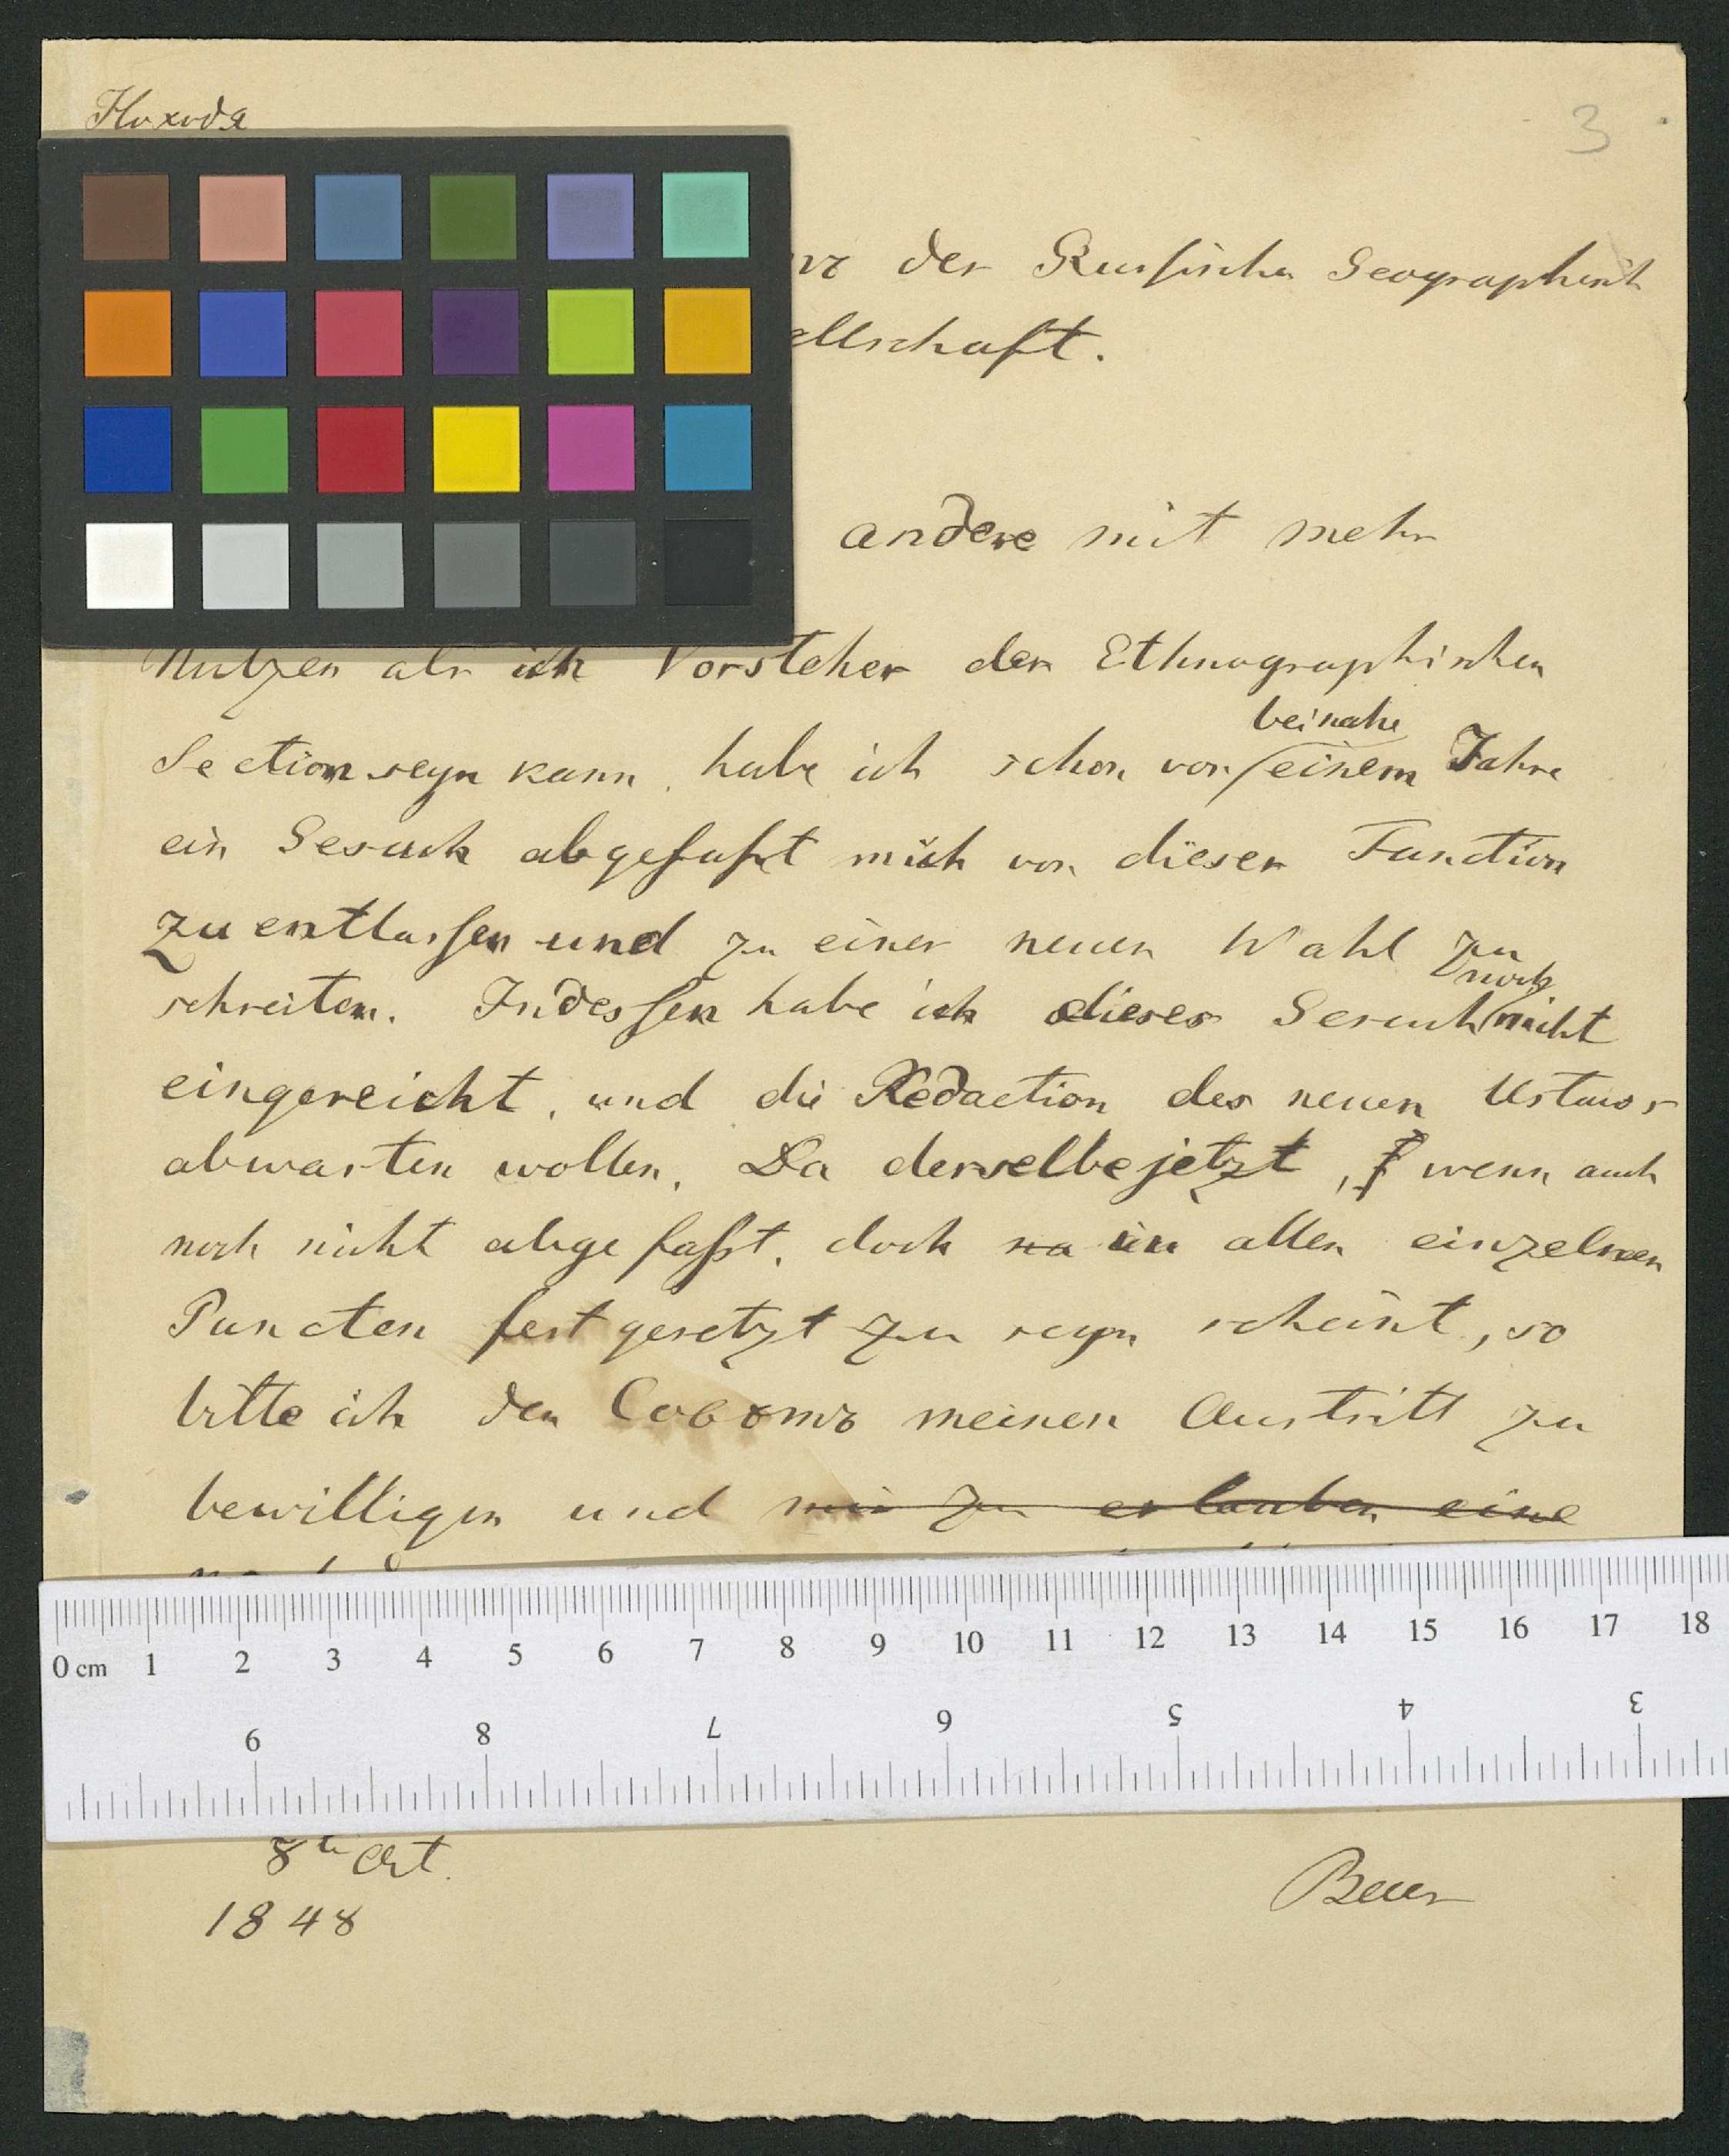 3
der Russischen Geographisch
ellschaft.
andere mit mehr
Nutzen als ich Vorsteher der Ethnographischen
beinahe
Section seyn kann, habe ich schon vor einem Jahre
ein Gesuch abgefaßt mich von dieser Function
zu entlassen und zu einer neuen Wahl zu
noch
schreiten. Indessen habe ich dieses Gesuch nicht
eingereicht, und die Redaction des neuen Ustaws
abwarten wollen. Da derselbe jetzt, wenn auch
noch nicht abgefasst, doch na in allen einzelnen
Puncten festgesetzt zu seyn scheint, so
bitte ich den Совѣтъ meinen Austritt zu
bewilligen und mir zu erlauben eine
0 cm 1 2 3 4 5 6 7 8 9 10 11 12 13 14 15 16 17 18
9 8 7 6 5 4 3
8te Oct.
1848
Baer